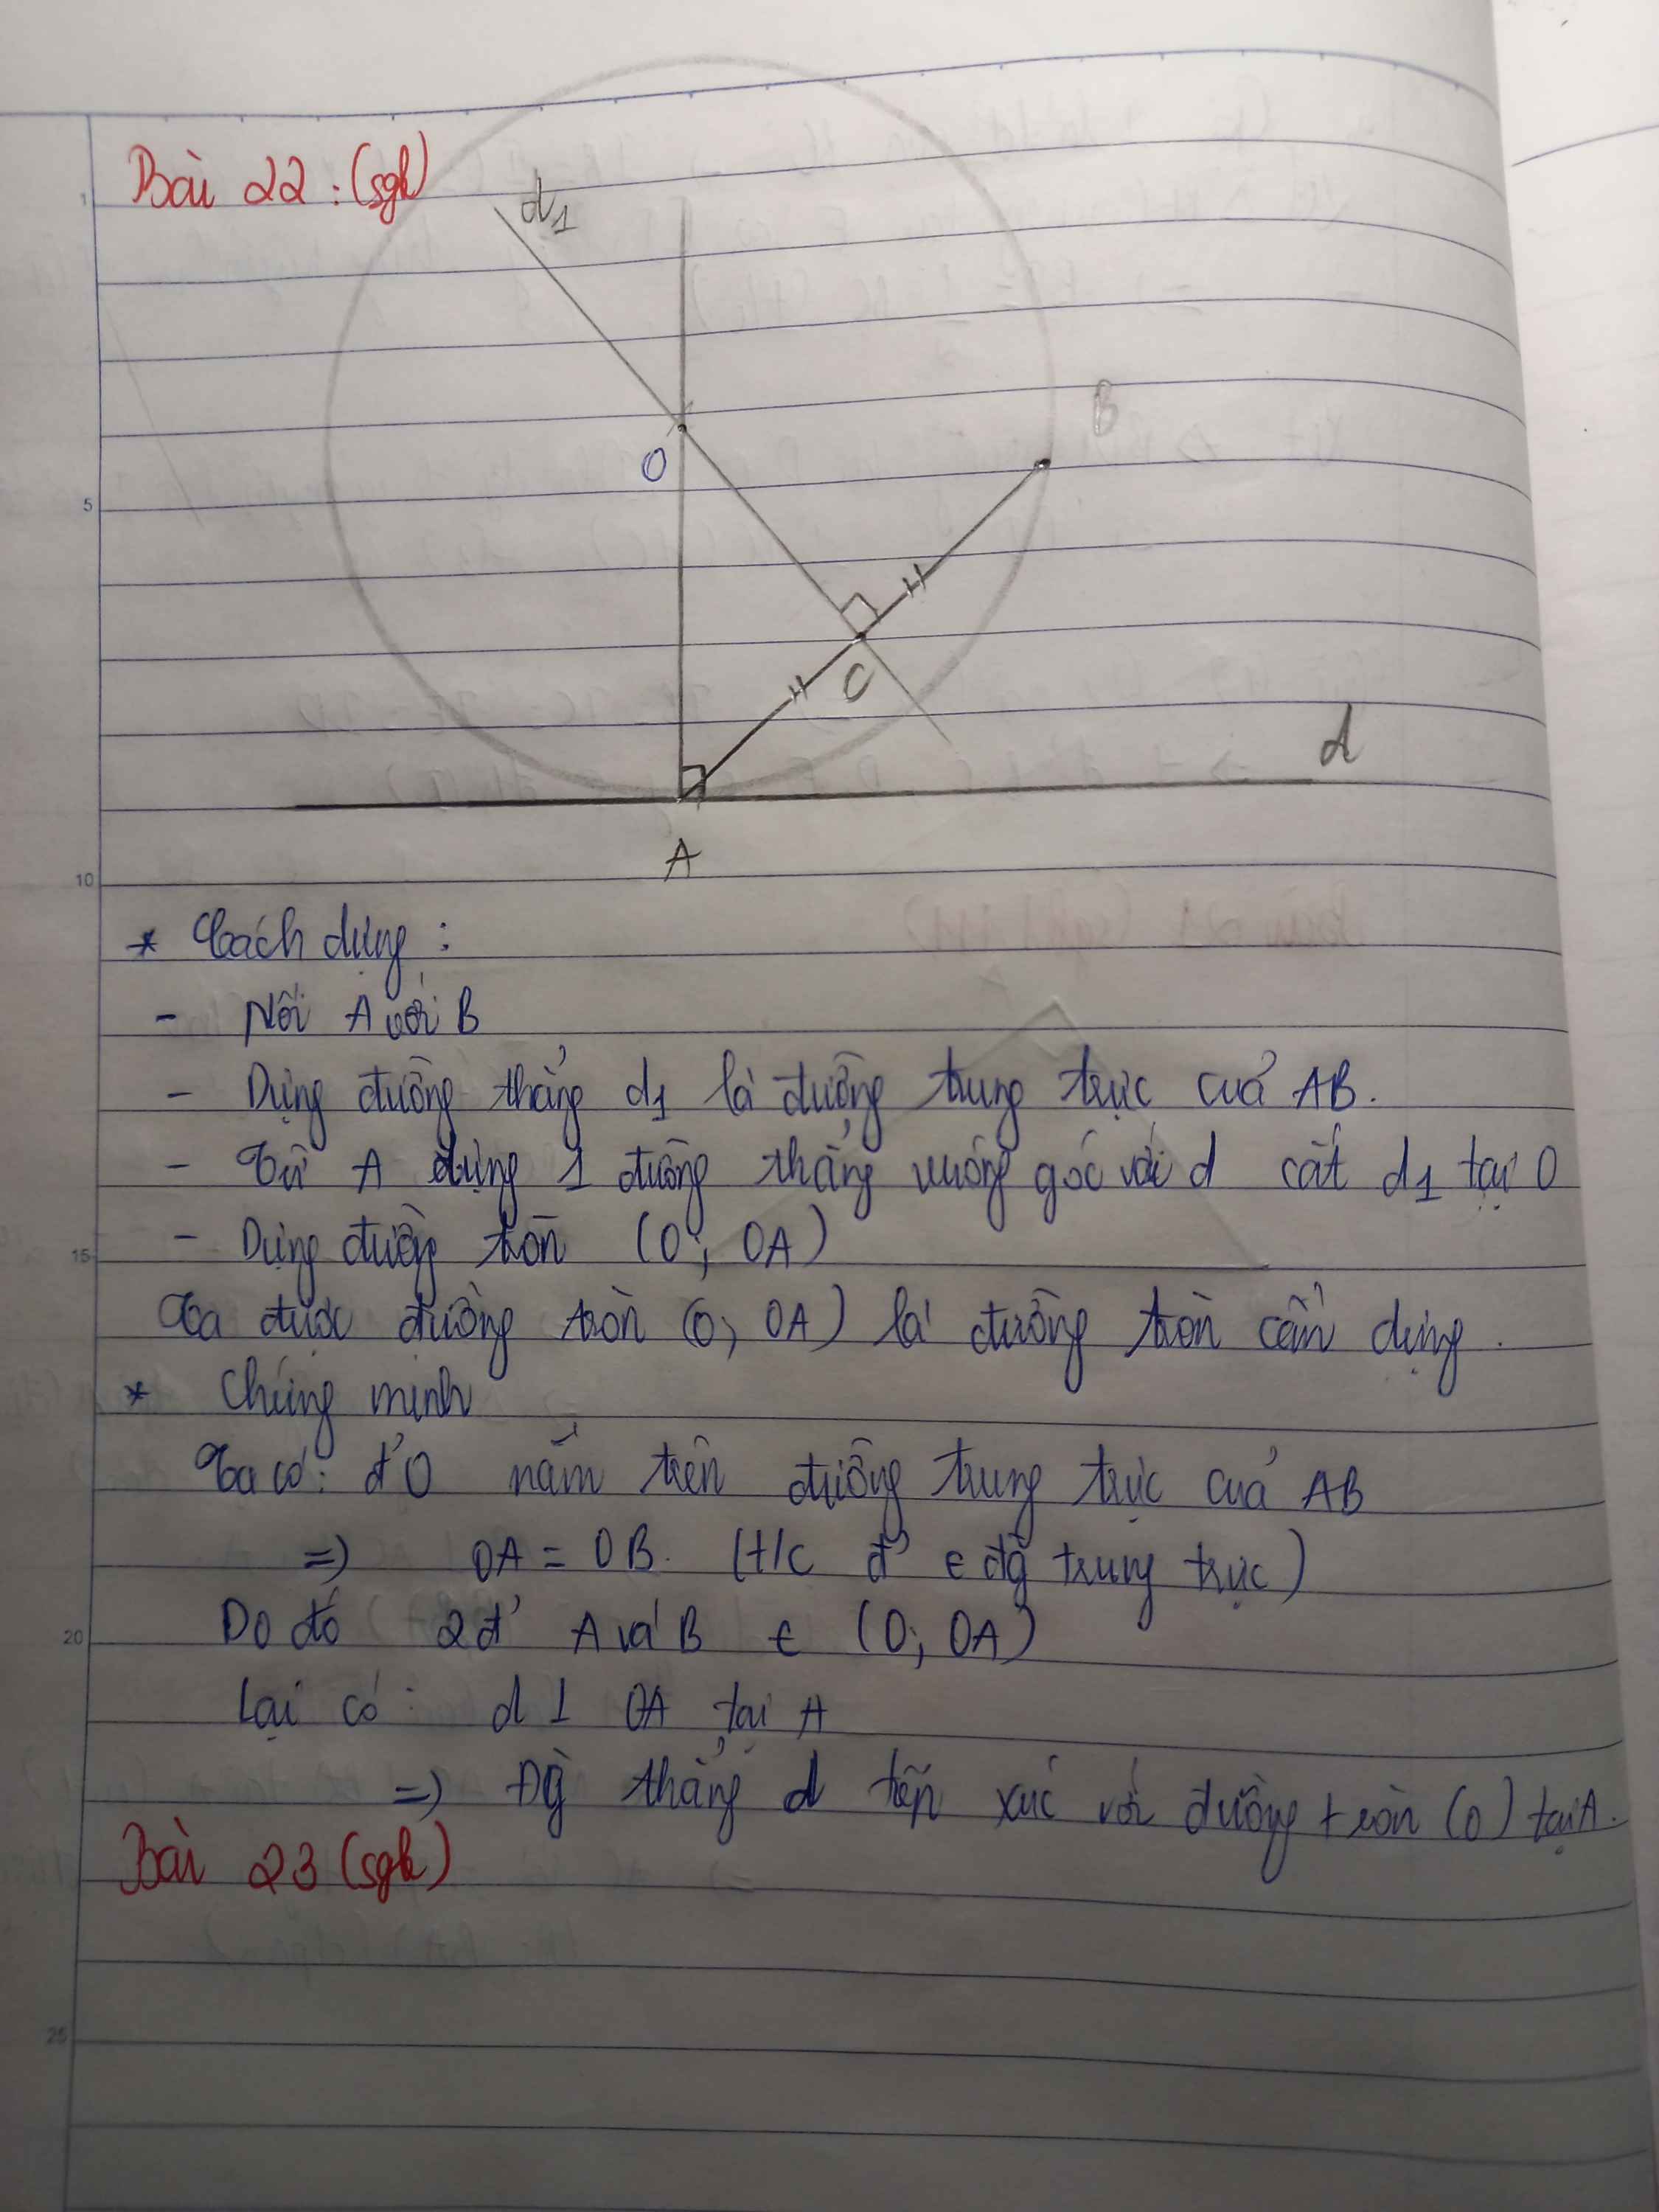 Bài 22: (sgk)
d1
B
O
C
d
A
* Cách dựng:
- Nối A với B
- Dựng đường thẳng d1 là đường trung trực của AB.
- Từ A dựng 1 đường thẳng vuông góc với d cắt d1 tại O
- Dựng đường tròn (O; OA)
Ta được đường tròn (O; OA) là đường tròn cần dựng.
* Chứng minh
Ta có: đ' O nằm trên đường trung trực của AB
=) OA = OB. (t/c đ' ∈ đg trung trực)
Do đó 2 đ' A và B ∈ (O; OA)
Lại có: d ⊥ OA tại A
=) Đg thẳng d tiếp xúc với đường tròn (O) tại A.
Bài 23 (sgk)
1
5
10
15
20
25